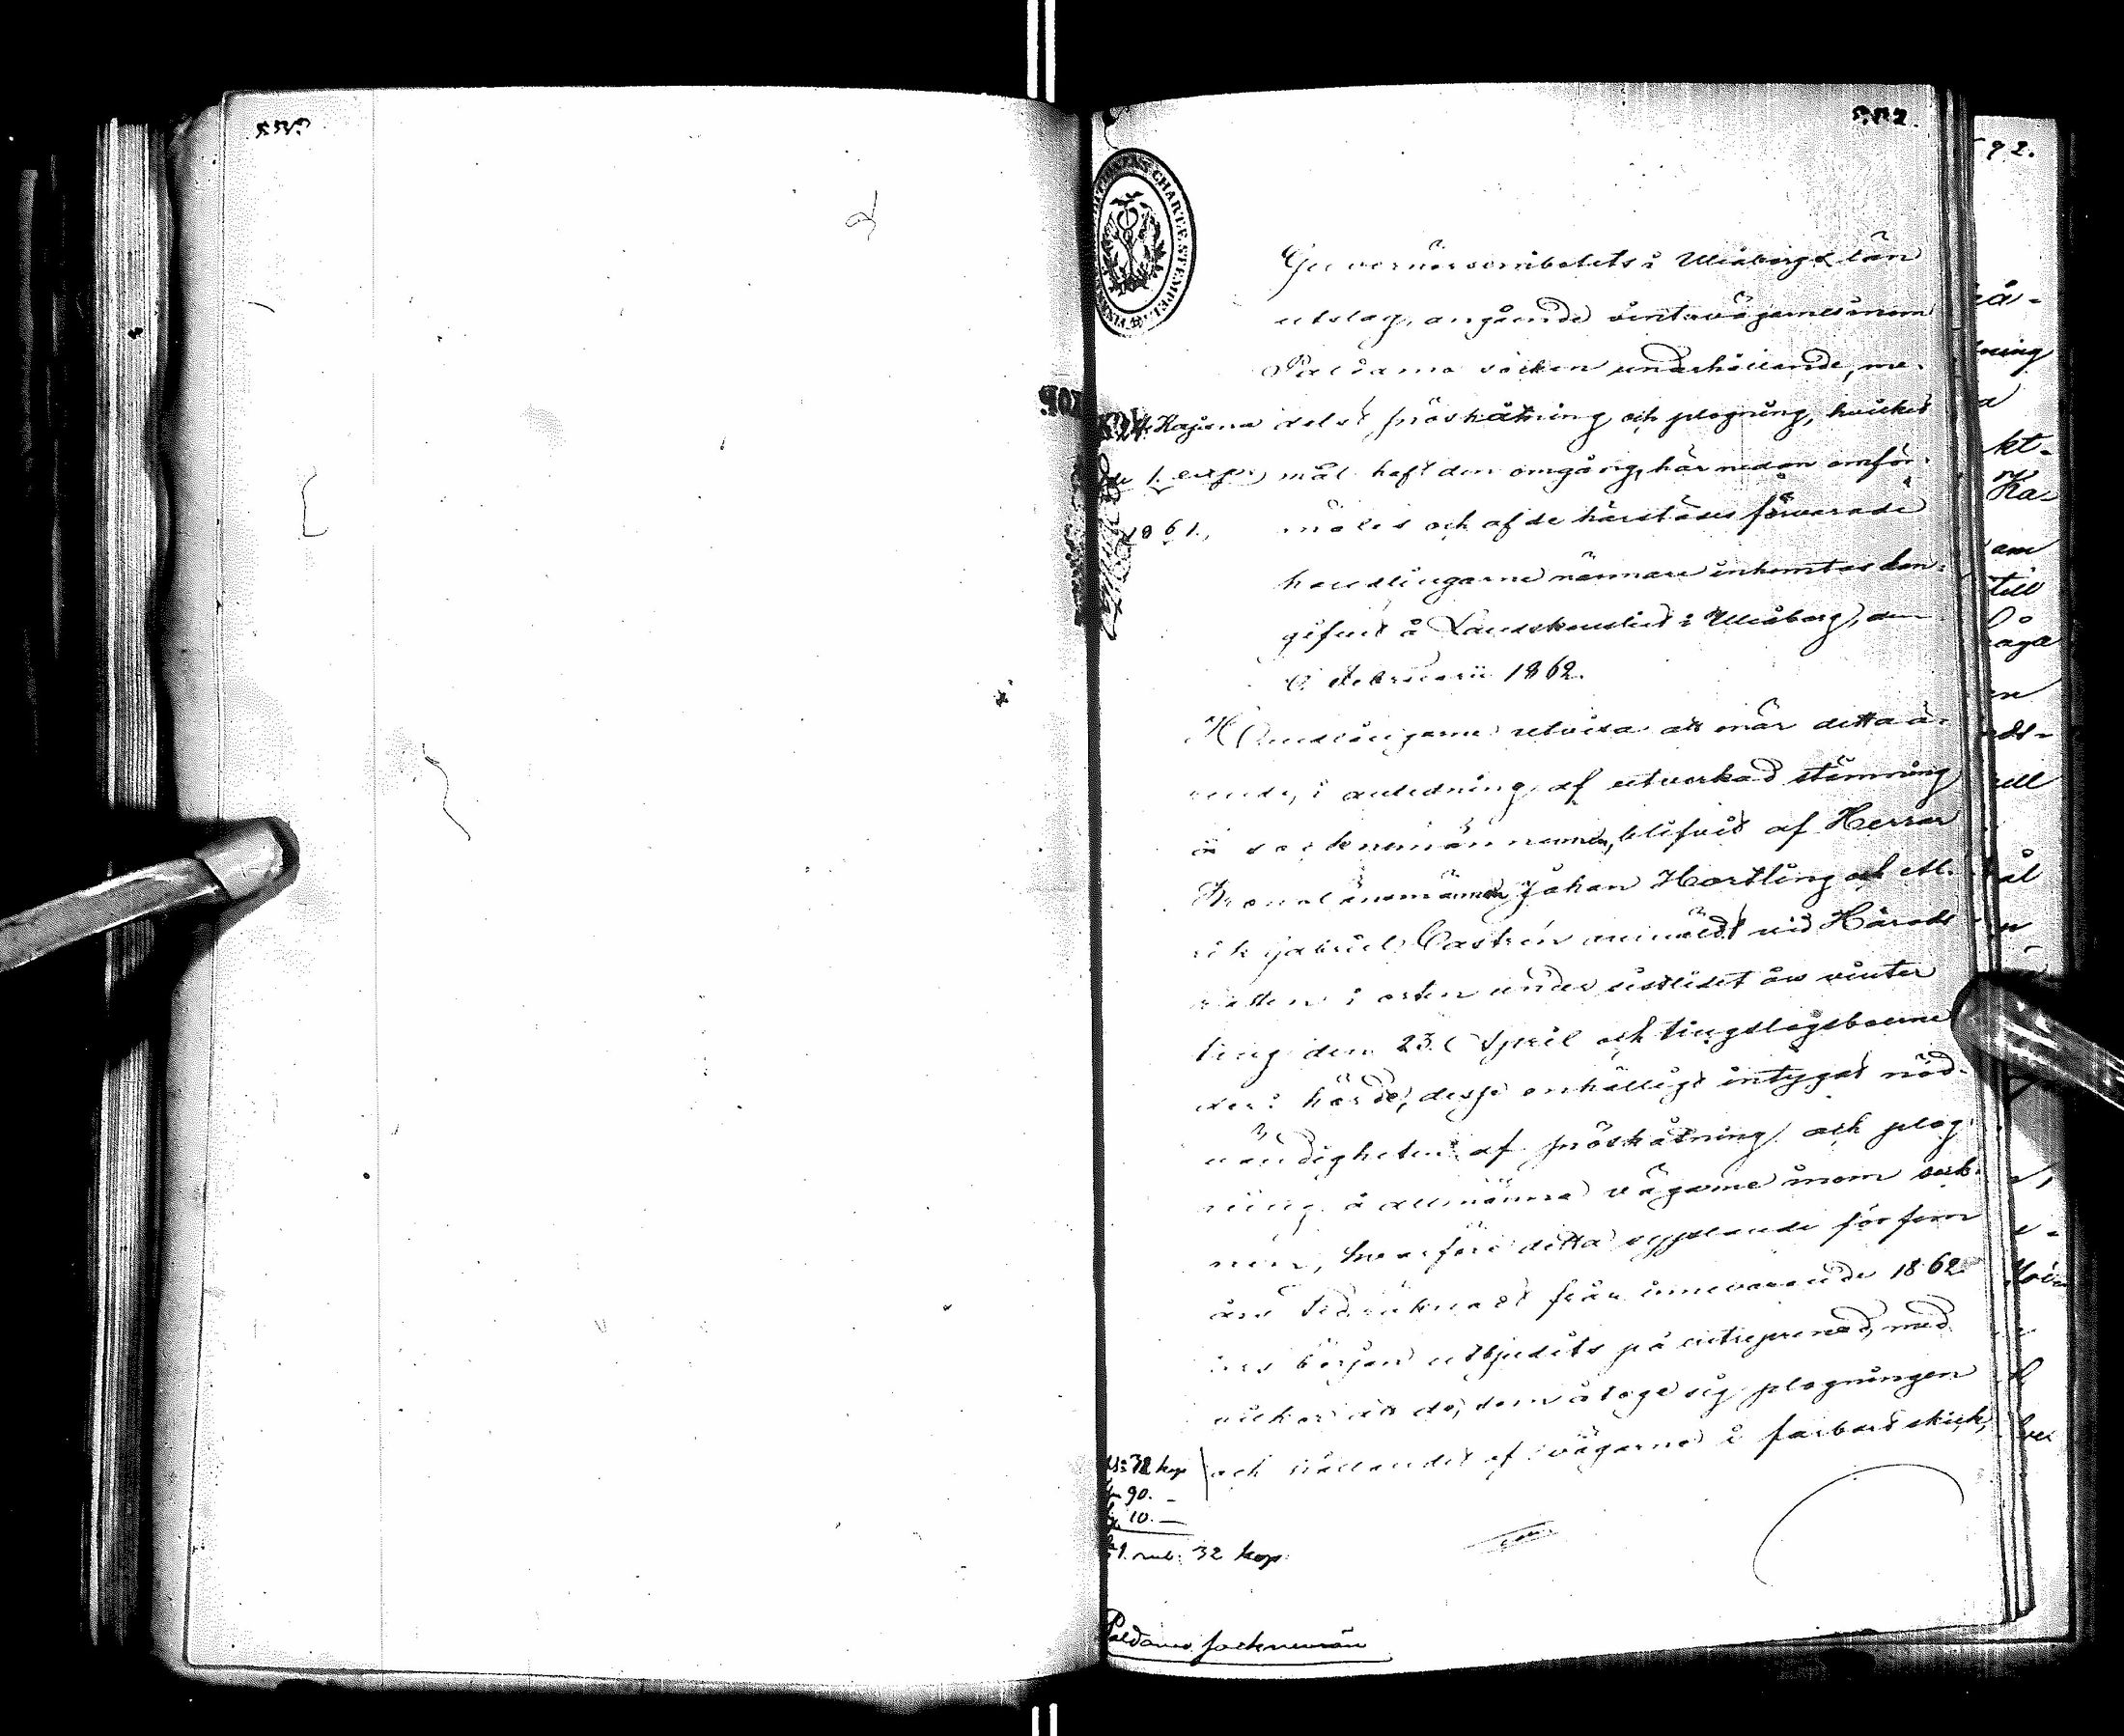 Guvernörsembetets i Uleåborgs län
utslag, angående vintervägarnes inom
Paldamo socken underhållande, me-
delst snöskåttning och plogning, hvilket
mål haft den omgång, här nedan omför-
mäles och af de härstädes förvarade
handlingarne närmare inhemtas kan;
gifvet å Landskansliet i Uleåborg, den
Februarii 1862.
Kajana
1. exp.
1861.
Handlingarne utvisa att när detta ä-
rende, i anledning af utverkad stämning
å sockenemännerne, blifvit af Herrar
Kronolänsmännen Johan Hartling och El-
rik Gabriel Castrén anmäldt vid Härads
rätten i orten under sistlidet års vinter
ting den 23 April och tingslagsboerne
der i hörde, desse enhälligt intygat nöd-
vändigheten af snöskåttning och plog-
ning å allmänna vägarne inom sock-
nen, hvarföre detta syssslande för fem
års tid, räknadt från innevarande 1862
års början utbjudits på entreprenad, med
vilkor att de, som åtoge sig plogningen
och hållandet af vägarne i farbart skick,
32 kop
90. —
10. —
1 rub: 32 kop:
Paldamo sockenemän